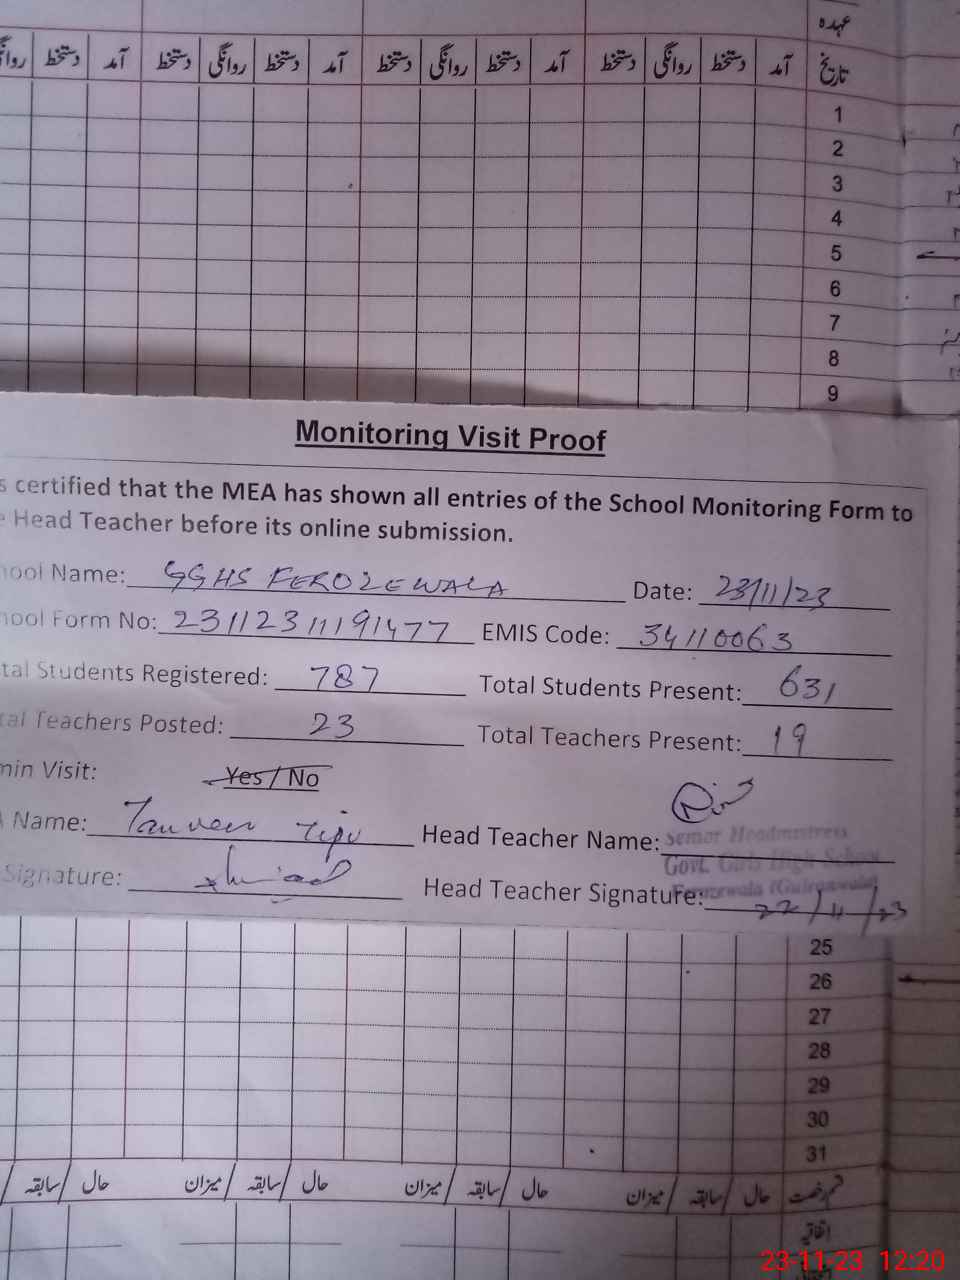 عہدہ
تاریخ آمد دستخط روانگی دستخط آمد دستخط روانگی دستخط آمد دستخط روانگی دستخط آمد دستخط
1
2
3
4
5
6
7
8
9
Monitoring Visit Proof
s certified that the MEA has shown all entries of the School Monitoring Form to
e Head Teacher before its online submission.
hool Name: GGHS FEROZEWALA Date: 23/11/23
hool Form No: 23112311191477 EMIS Code: 34110063
tal Students Registered: 787 Total Students Present: 631
tal Teachers Posted: 23 Total Teachers Present: 19
min Visit: Yes / No
Name: Tanveer Tipu Head Teacher Name:
Senior Headmistress
Govt. Girls High School
Signature: Head Teacher Signature: Ferozewala (Gujranwala)
22/11/23
25
26
27
28
29
30
31
قسم رخصت حال / سابقہ / میزان حال / سابقہ / میزان حال / سابقہ / میزان حال / سابقہ /
اتفاقیہ
23-11-23 12:20